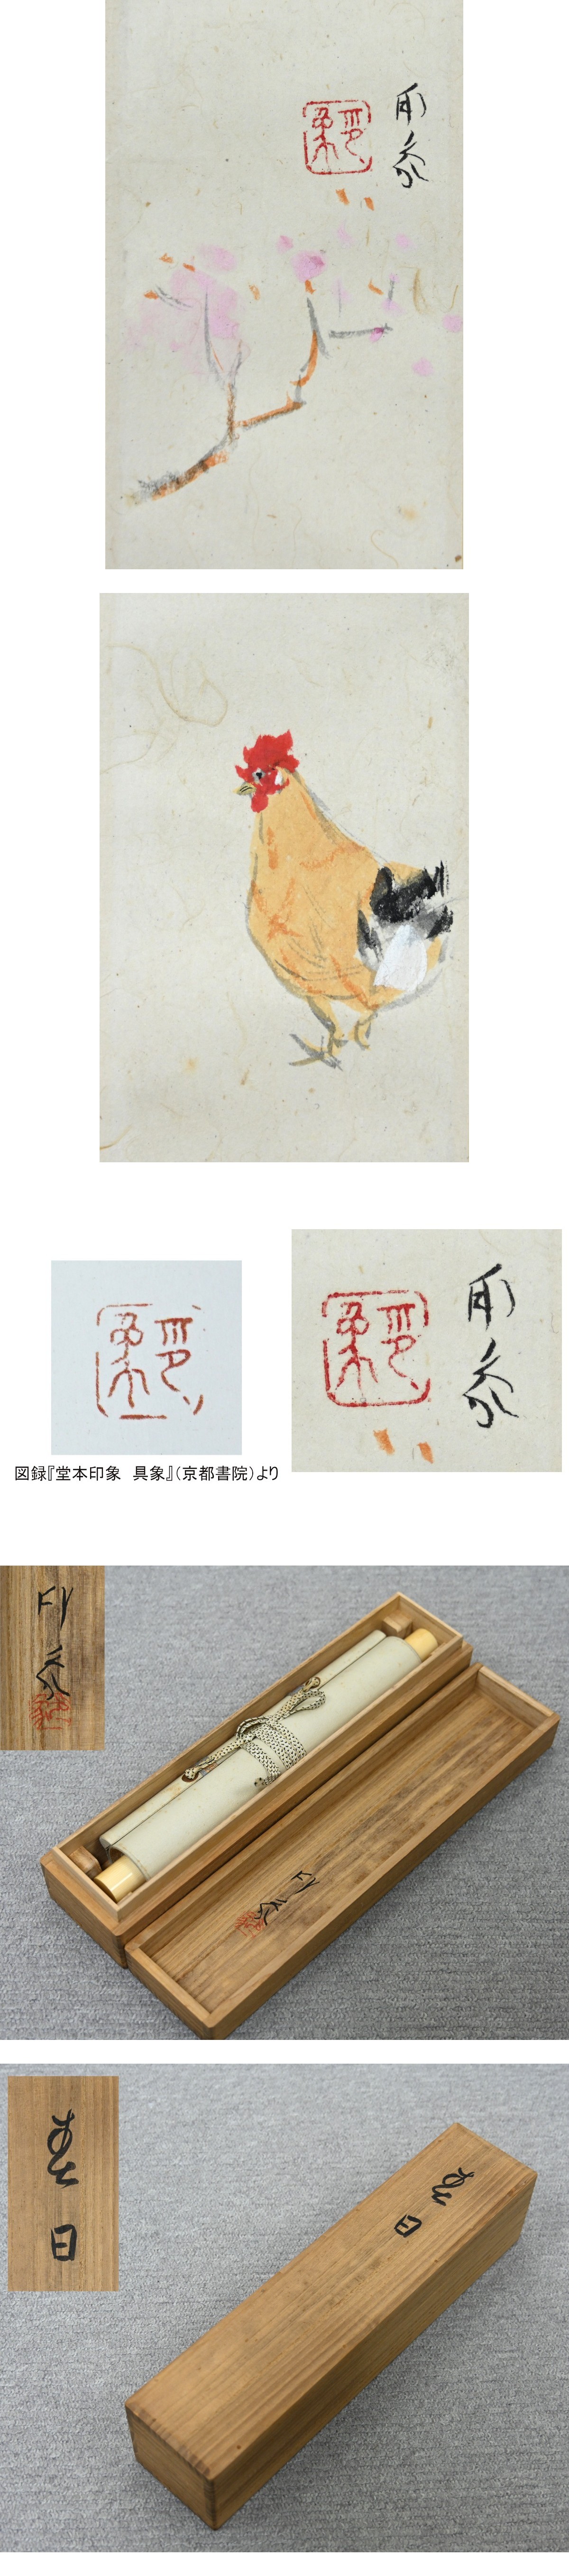 印象
印象
印象
図録『堂本印象　具象』（京都書院）より
印象
印象
印象
印象
春日
春日